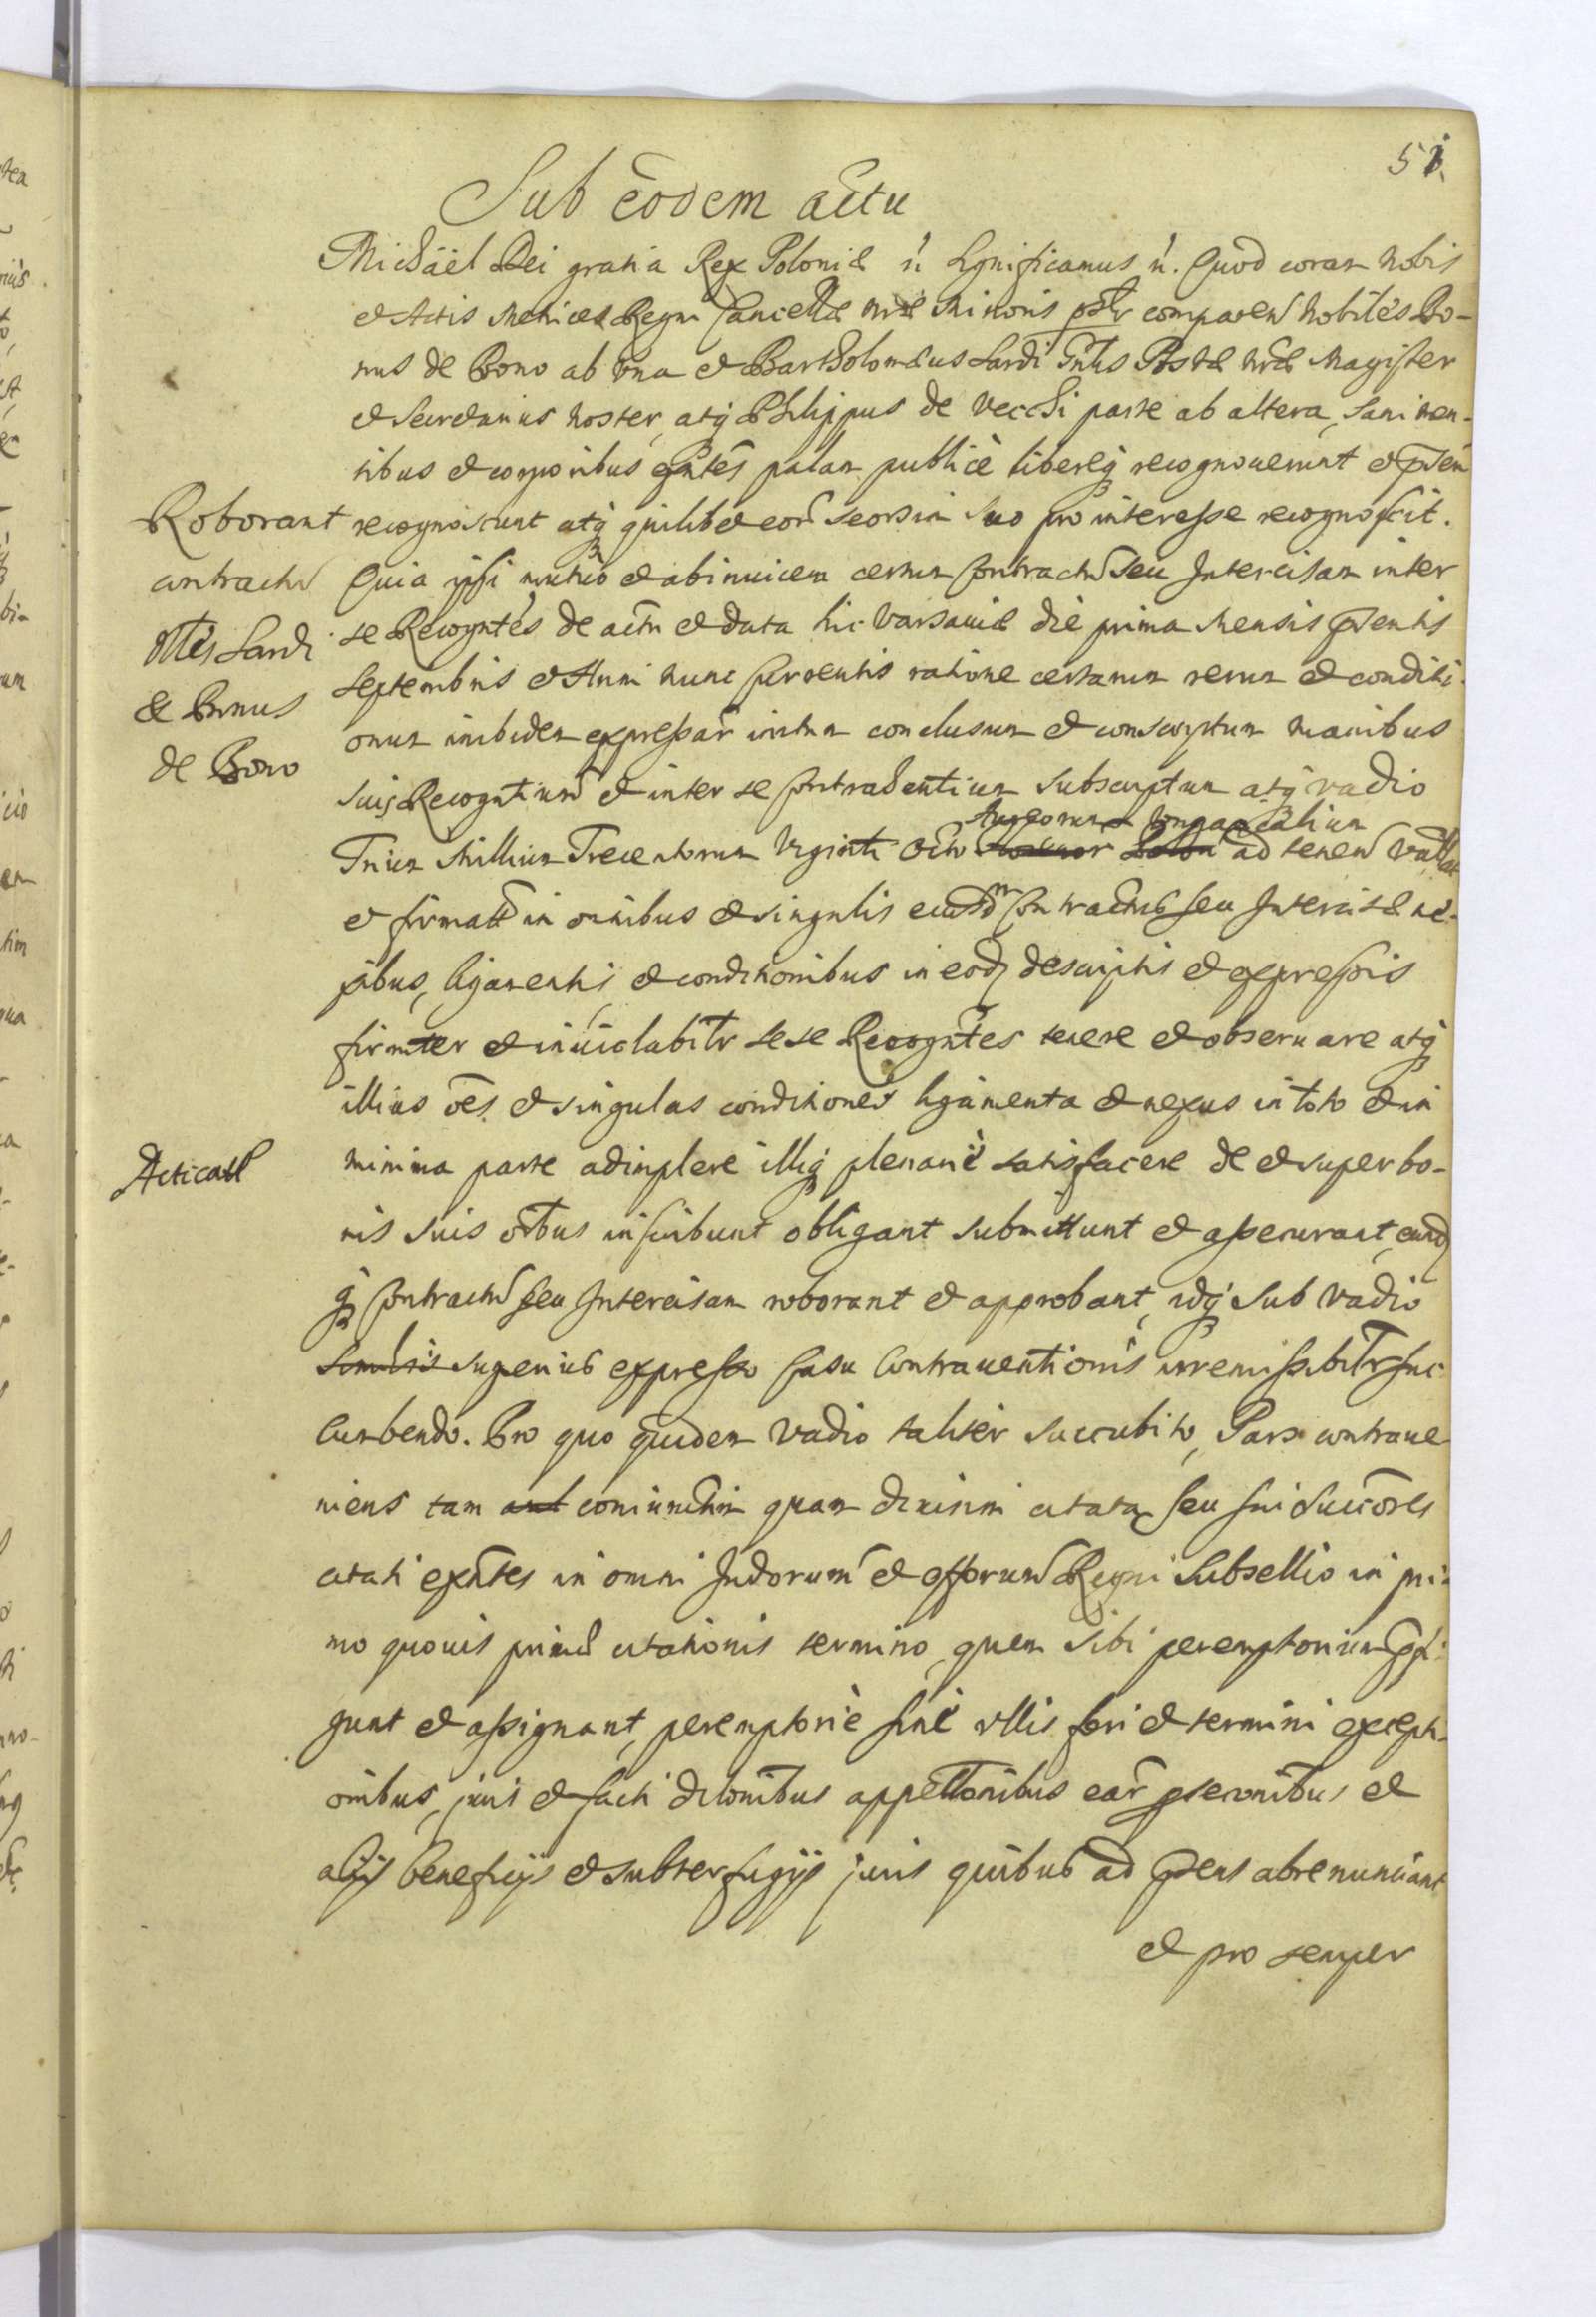 51.
Sub eodem actu
Michäel Dei gratia Rex Poloniæ rc significamus rc. Quod coram Nobis
et Actis Metrices Regni Cancellæ nræ Minoris psonlr comparen Nobiles Bo-
nus de Bono ab una et Bartholomæus Sardi Gnlis Postæ nræ Magister
et Secretarius Noster, atq Philippus de Vecchi parte ab altera, sani men-
tibus et corporibus exntes palam publicè libereq recognouerunt et psen
recognoscunt atq quilibet eor seorsim suo pro interesse recognoscit.
Roborant
contractu
Sardi
& Bonus
de Bono
Quia ipsi mutuo et abinuicem certum Contractu seu Intercisam inter
se Recogntes de actu et data hic Varsauiæ die prima Mensis psentis
Septembris et Anni nunc currentis ratione certarum rerum et conditi-
onum inibidem expressar initum conclusum et conscriptum manibus
suis Recogntium et inter se Contrahentium subscriptum atq vadio
Aureorum Ungaricalium
Trium Millium Trecentorum Viginti Octo ad tenen Vallat
et firmatt in omnibus et singulis eiusdm Contractus seu Intercisæ ne-
xibus, ligamentis et conditionibus in eodz descriptis et expressis
firmter et inuiolabitr sese Recogntes tenere et obseruare atq
illius oes et singulas conditiones ligamenta et nexus in toto et in
Acticatt
minima parte adimplere illiq plenariè satisfacere de et super bo-
nis suis oibus inscribunt obligant submittunt et assecurant, eundz
q Contractu seu Intercisam roborant et approbant, idq sub vadio
superius expresso Casu Contrauentionis irremissibitr suc-
cumbendo. Pro quo quidem Vadio taliter succubito, Pars contraue
niens tam coniunctim quam diuisim citata seu sui succores
citati exntes in omni Judiorum et Offorum Regni Subsellio in pri-
mo quouis primæ citationis termino, quem sibi peremptorium pfi-
gunt et assignant, peremptoriè sine vllis fori et termini excepti-
onibus, juris et facti dilonibus appellonibus ear pseconibus et
alijs beneficijs et subterfugijs juris quibus ad psens abrenunciant
et pro semper